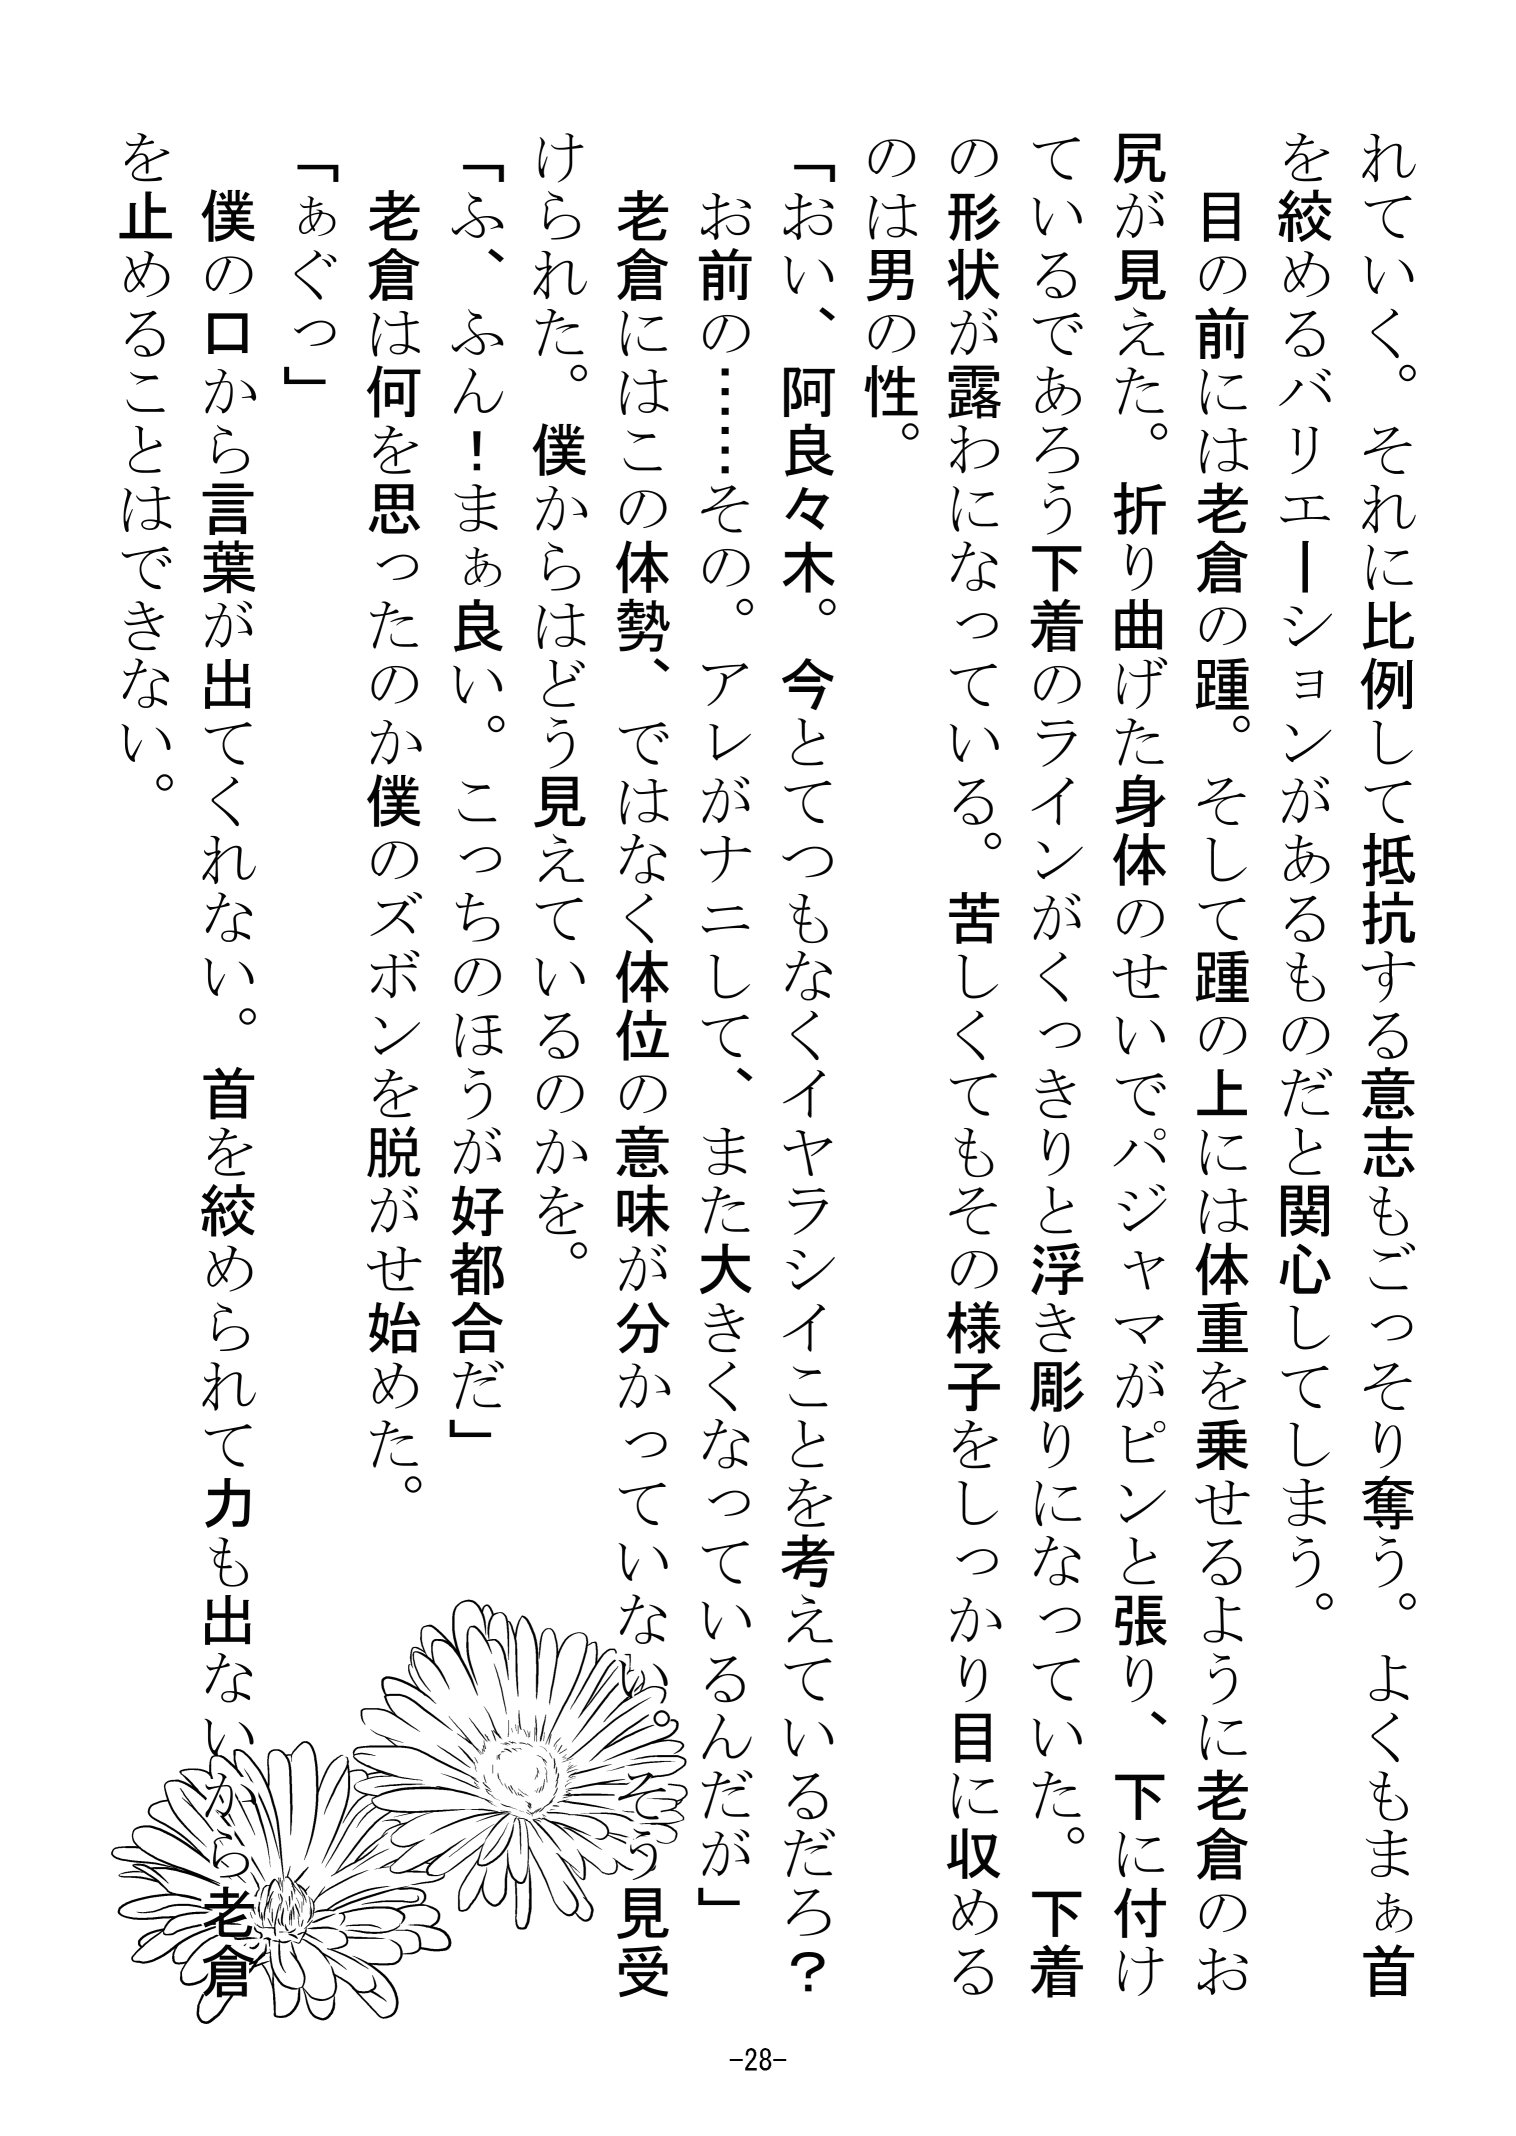 れていく。それに比例して抵抗する意志もごっそり奪う。よくもまぁ首
を絞めるバリエーションがあるものだと関心してしまう。
目の前には老倉の踵。そして踵の上には体重を乗せるように老倉のお
尻が見えた。折り曲げた身体のせいでパジャマがピンと張り、下に付け
ているであろう下着のラインがくっきりと浮き彫りになっていた。下着
の形状が露わになっている。苦しくてもその様子をしっかり目に収める
のは男の性。
「おい、阿良々木。今とてつもなくイヤラシイことを考えているだろ?
お前の……その。アレがナニして、また大きくなっているんだが」
老倉にはこの体勢、ではなく体位の意味が分かっていない。そう見受
けられた。僕からはどう見えているのかを。
「ふ、ふん!まぁ良い。こっちのほうが好都合だ」
老倉は何を思ったのか僕のズボンを脱がせ始めた。
「ぁぐっ」
僕の口から言葉が出てくれない。首を絞められて力も出ないから老倉
を止めることはできない。
-28-